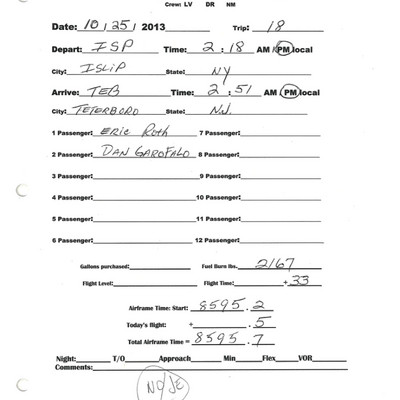 Crew: LV DR NM
Date: 10/25/2013 Trip: 18
Depart: ISP Time: 2:18 AM/PM local
City: ISLIP State: NY
Arrive: TEB Time: 2:51 AM/PM local
City: TETERBORO State: NJ.
1 Passenger: Eric Roth 7 Passenger:
2 Passenger: DAN GAROFALO 8 Passenger:
3 Passenger: 9 Passenger:
4 Passenger: 10 Passenger:
5 Passenger: 11 Passenger:
6 Passenger: 12 Passenger:
Gallons purchased: Fuel Burn lbs. 2167
Flight Level: Flight Time: + 33
Airframe Time: Start: 8595.2
Today's flight: + .5
Total Airframe Time = 8595.7
Night: T/O Approach Min Flex VOR
Comments:
NO/JE